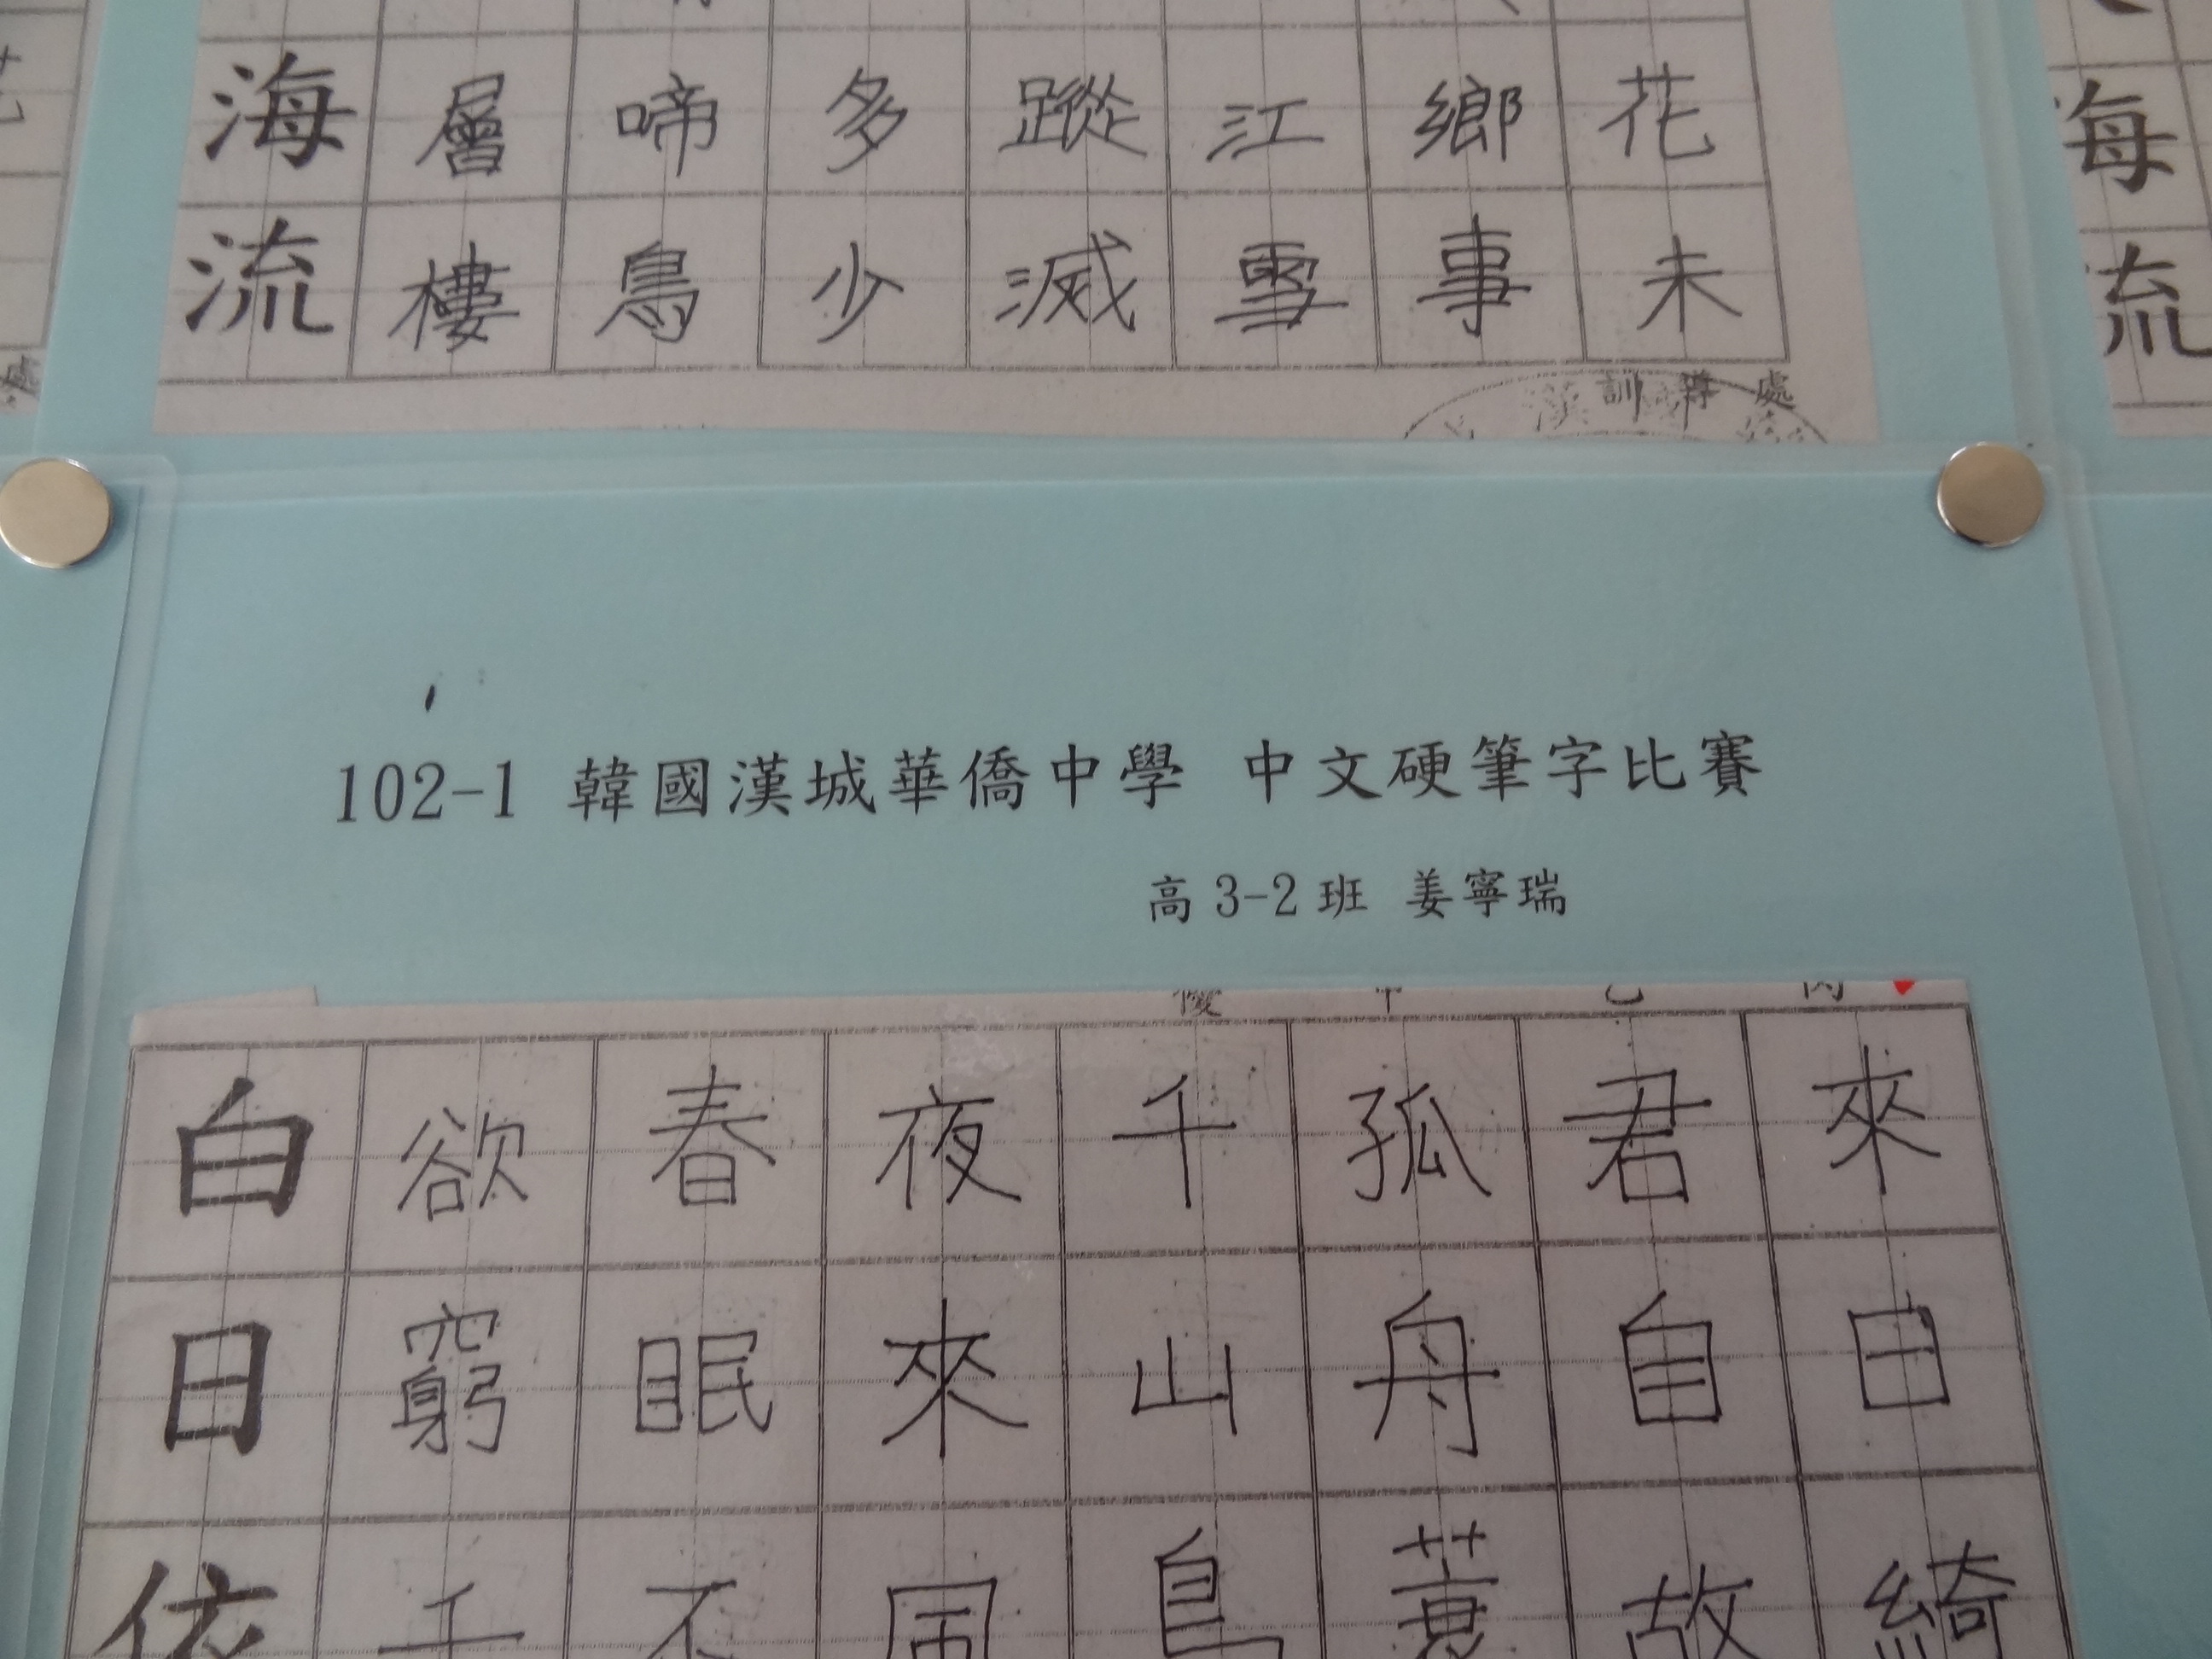 海層啼多蹤江鄉花
流樓鳥少滅雪事未
訓導處
海
流
102-1 韓國漢城華僑中學 中文硬筆字比賽
高 3-2 班 姜寧瑞
白欲春夜千孤君來
日窮眠來山舟自日
依千不風鳥蓑故綺